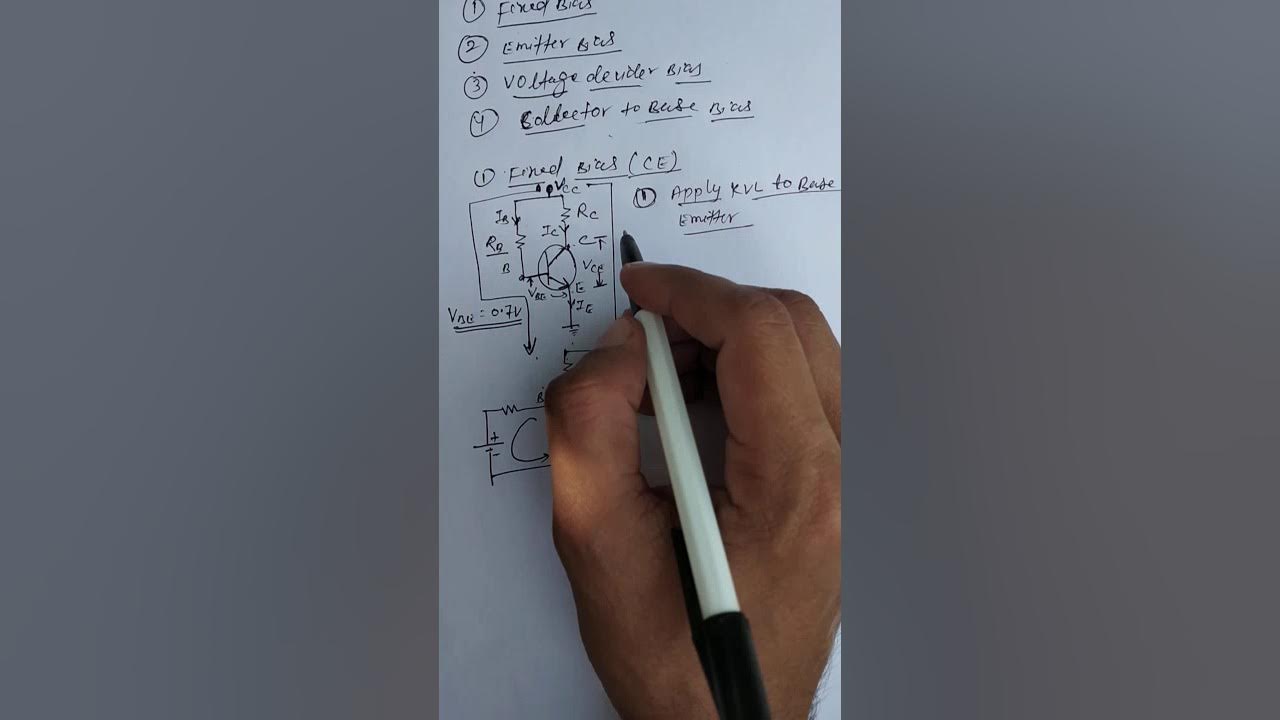 ① Fixed Bias
② Emitter Bias
③ Voltage devider Bias
④ Collector to Base Bias
① Fixed Bias (CE)
VCC
① Apply KVL to Base
Emitter
IB
RC
IC
C
RB
B
VCE
VBE
E
IE
VBE = 0.7V
B
+
-